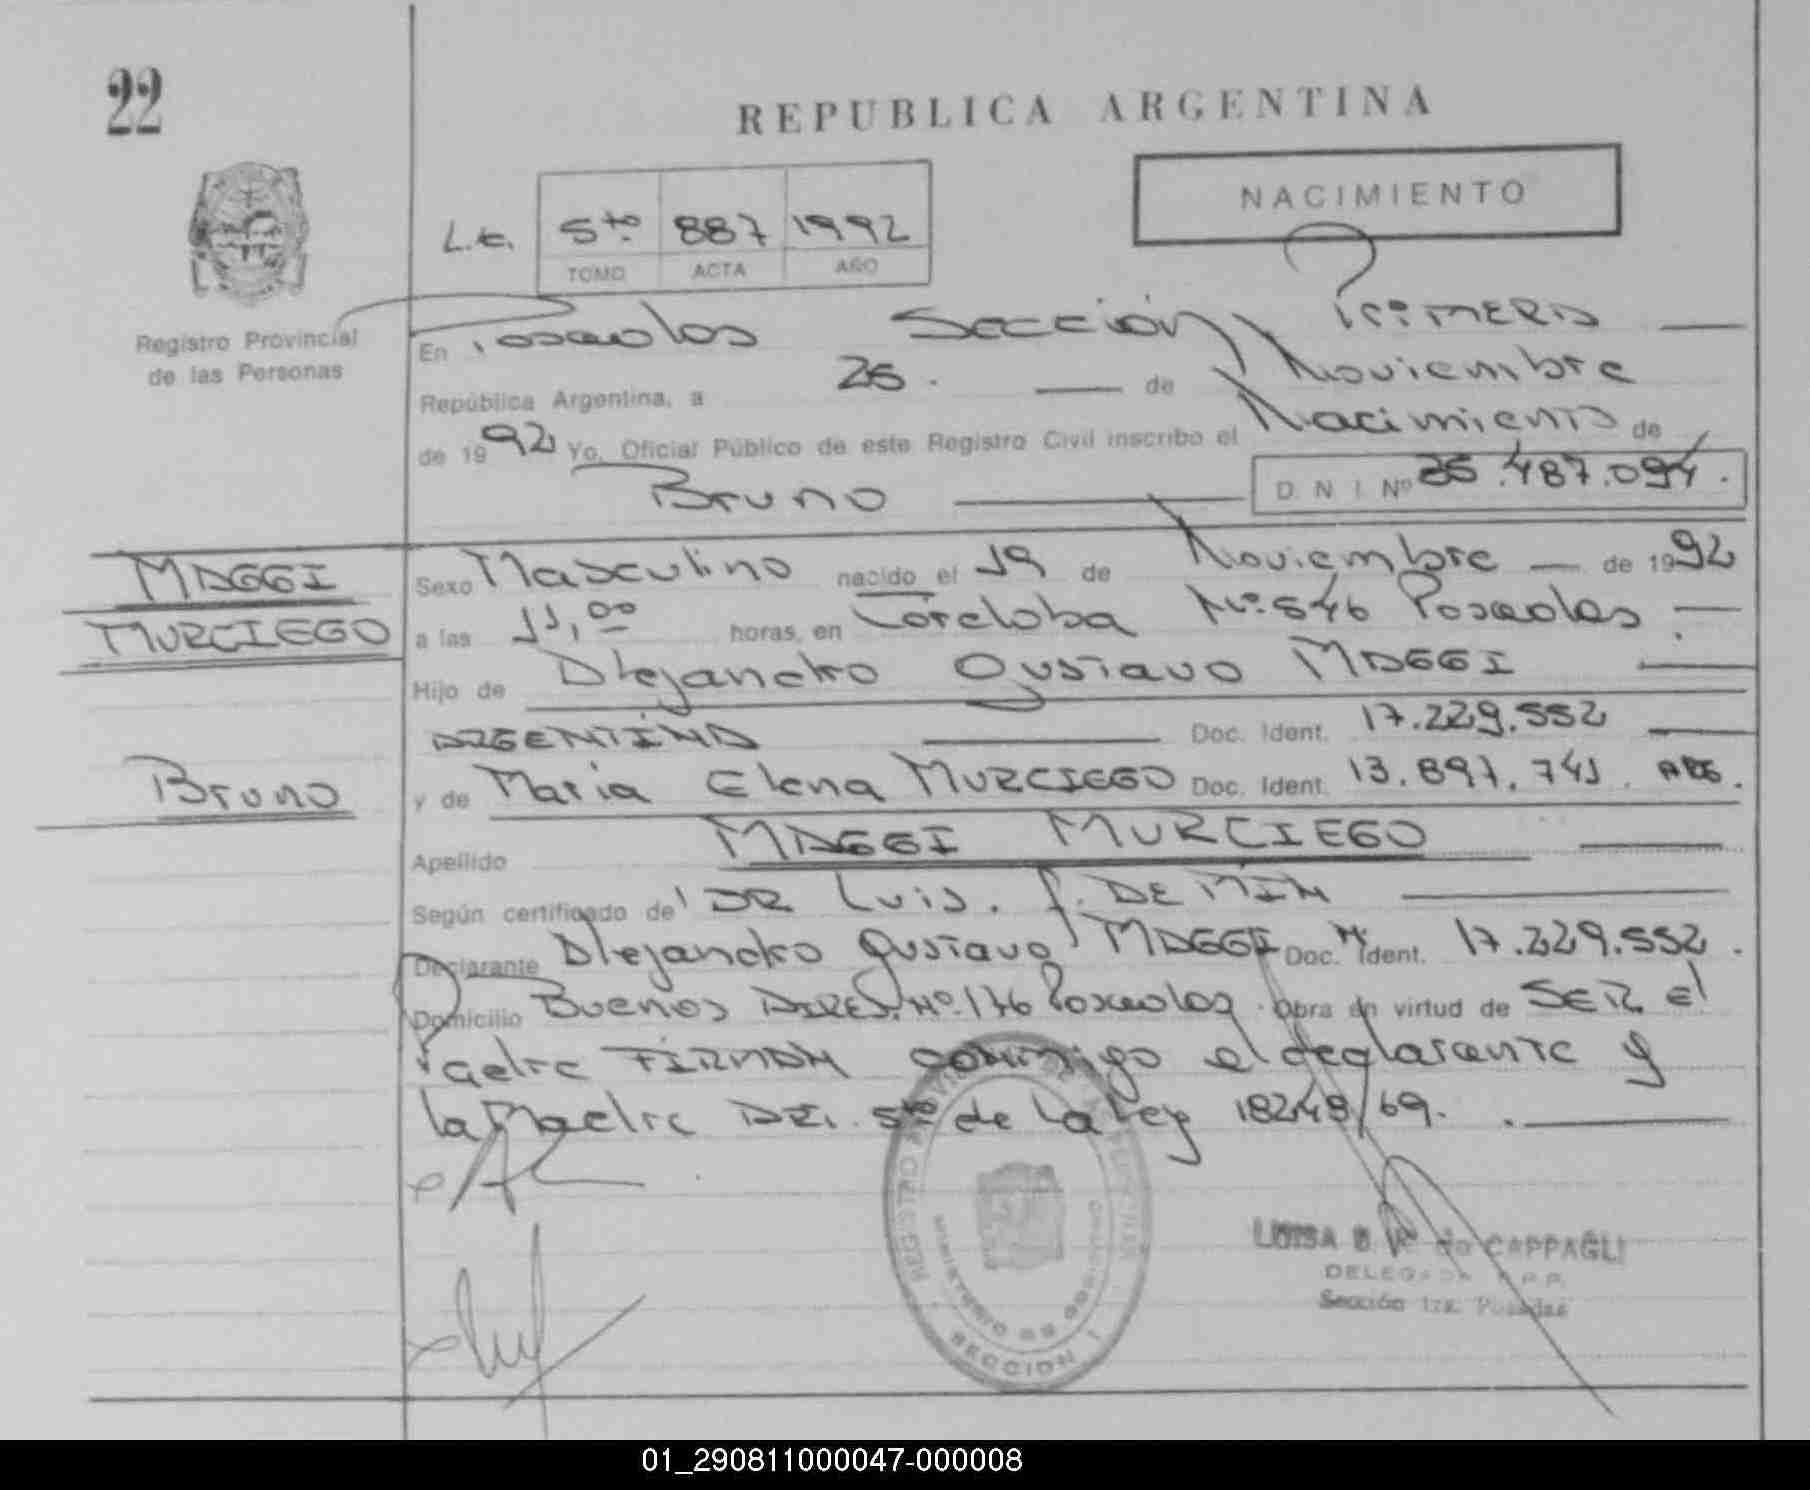 22
REPUBLICA ARGENTINA
NACIMIENTO
L.E. 5to 887 1992
TOMO ACTA AÑO
Registro Provincial
de las Personas
En Posadas Sección Primera
República Argentina, a 26. de Noviembre
de 1992 Yo, Oficial Público de este Registro Civil inscribo el Nacimiento de
Bruno D. N. I. Nº .487.094.
MAGGI
MURCIEGO
Bruno
Sexo Masculino nacido el 19 de Noviembre de 1992
a las 11,00 horas, en Córdoba Nº 546 Posadas.
Hijo de Alejandro Gustavo MAGGI
ARGENTINA Doc. Ident. 17.229.552
y de Maria Elena MURCIEGO Doc. Ident. 13.897.741. ARG.
Apellido MAGGI MURCIEGO
Según certificado de DR Luis. f. DE MIN
Declarante Alejandro Gustavo MAGGI Doc. Ident. 17.229.552.
Domicilio Buenos AIRES. Nº 176 Posadas. Obra en virtud de SER el
Padre FIRMAN conmigo el declarante y
la Madre ART. 5to de La Ley 18248/69.
REGISTRO PROVINCIAL DE LAS PERSONAS
MINISTERIO DE GOBIERNO
SECCION 1
LUISA de CAPPAGLI
DELEGADA R.P.P.
Sección 1ra. Posadas
01_290811000047-000008